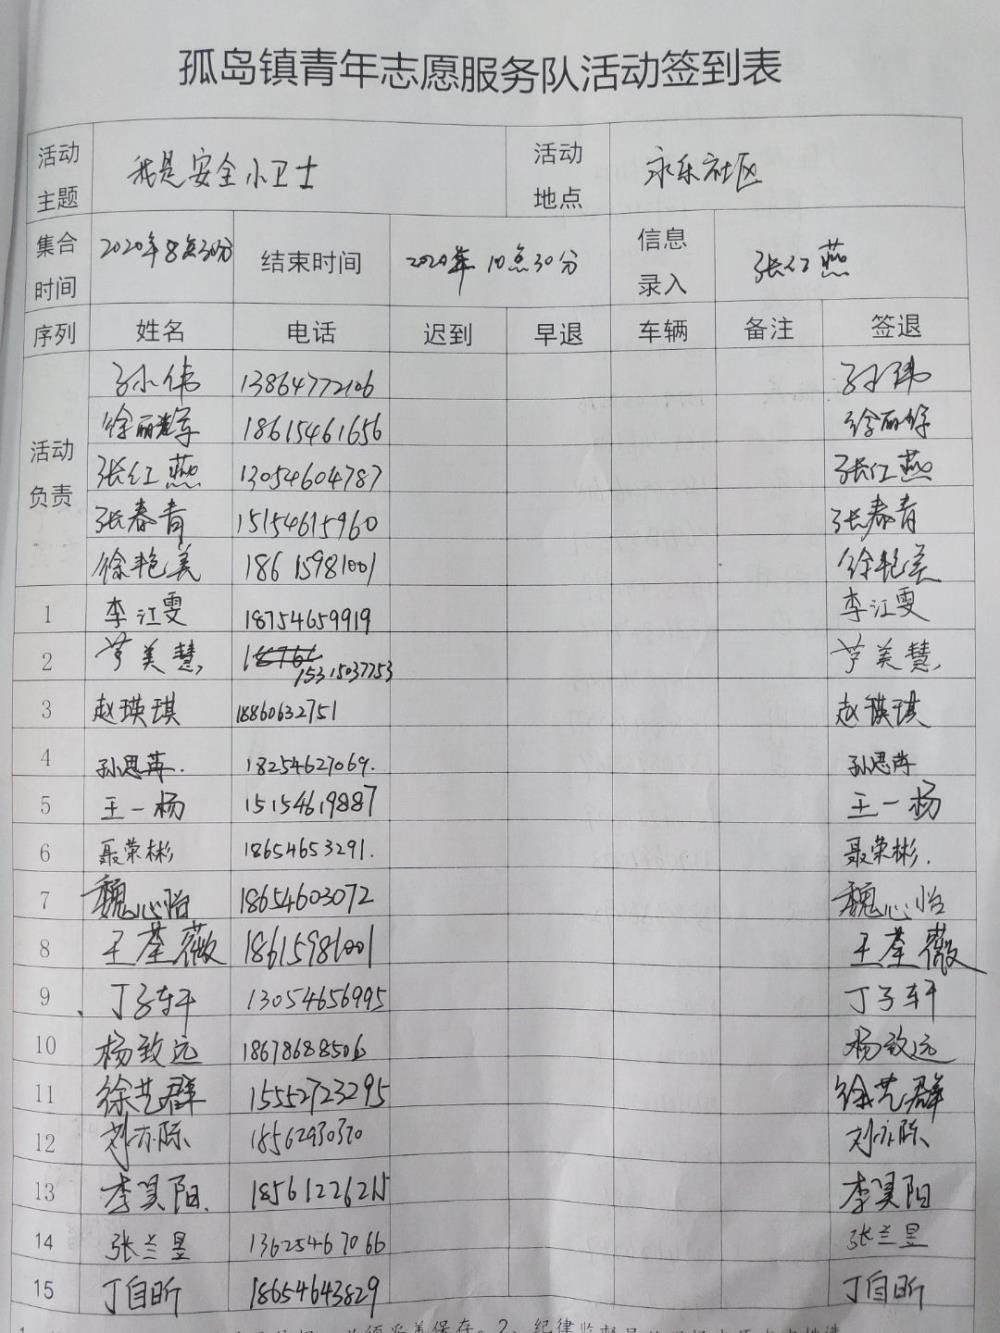 孤岛镇青年志愿服务队活动签到表
活动主题 我是安全小卫士 活动地点 永乐社区
集合时间 2020年8点30分 结束时间 2020年10点30分 信息录入 张红燕
序列 姓名 电话 迟到 早退 车辆 备注 签退
活动负责
孙小伟 13864772106 孙小伟
徐丽 18615461656 徐丽
张红燕 13054604787 张红燕
张春青 15154615960 张春青
徐艳美 18615981001 徐艳美
1 李江雯 18754659919 李江雯
2 美慧 15315037753 美慧
3 赵瑛琪 18860632751 赵瑛琪
4 孙思苒 18254627069 孙思苒
5 王一杨 15154619887 王一杨
6 聂荣彬 18654653291 聂荣彬
7 魏心怡 18654603072 魏心怡
8 王荃薇 18615981001 王荃薇
9 丁子轩 13054656995 丁子轩
10 杨致远 18678688506 杨致远
11 徐艺群 15552723295 徐艺群
12 刘亦际 18562930320 刘亦际
13 李昊阳 18561226215 李昊阳
14 张兰昱 13625467066 张兰昱
15 丁自昕 18654643829 丁自昕